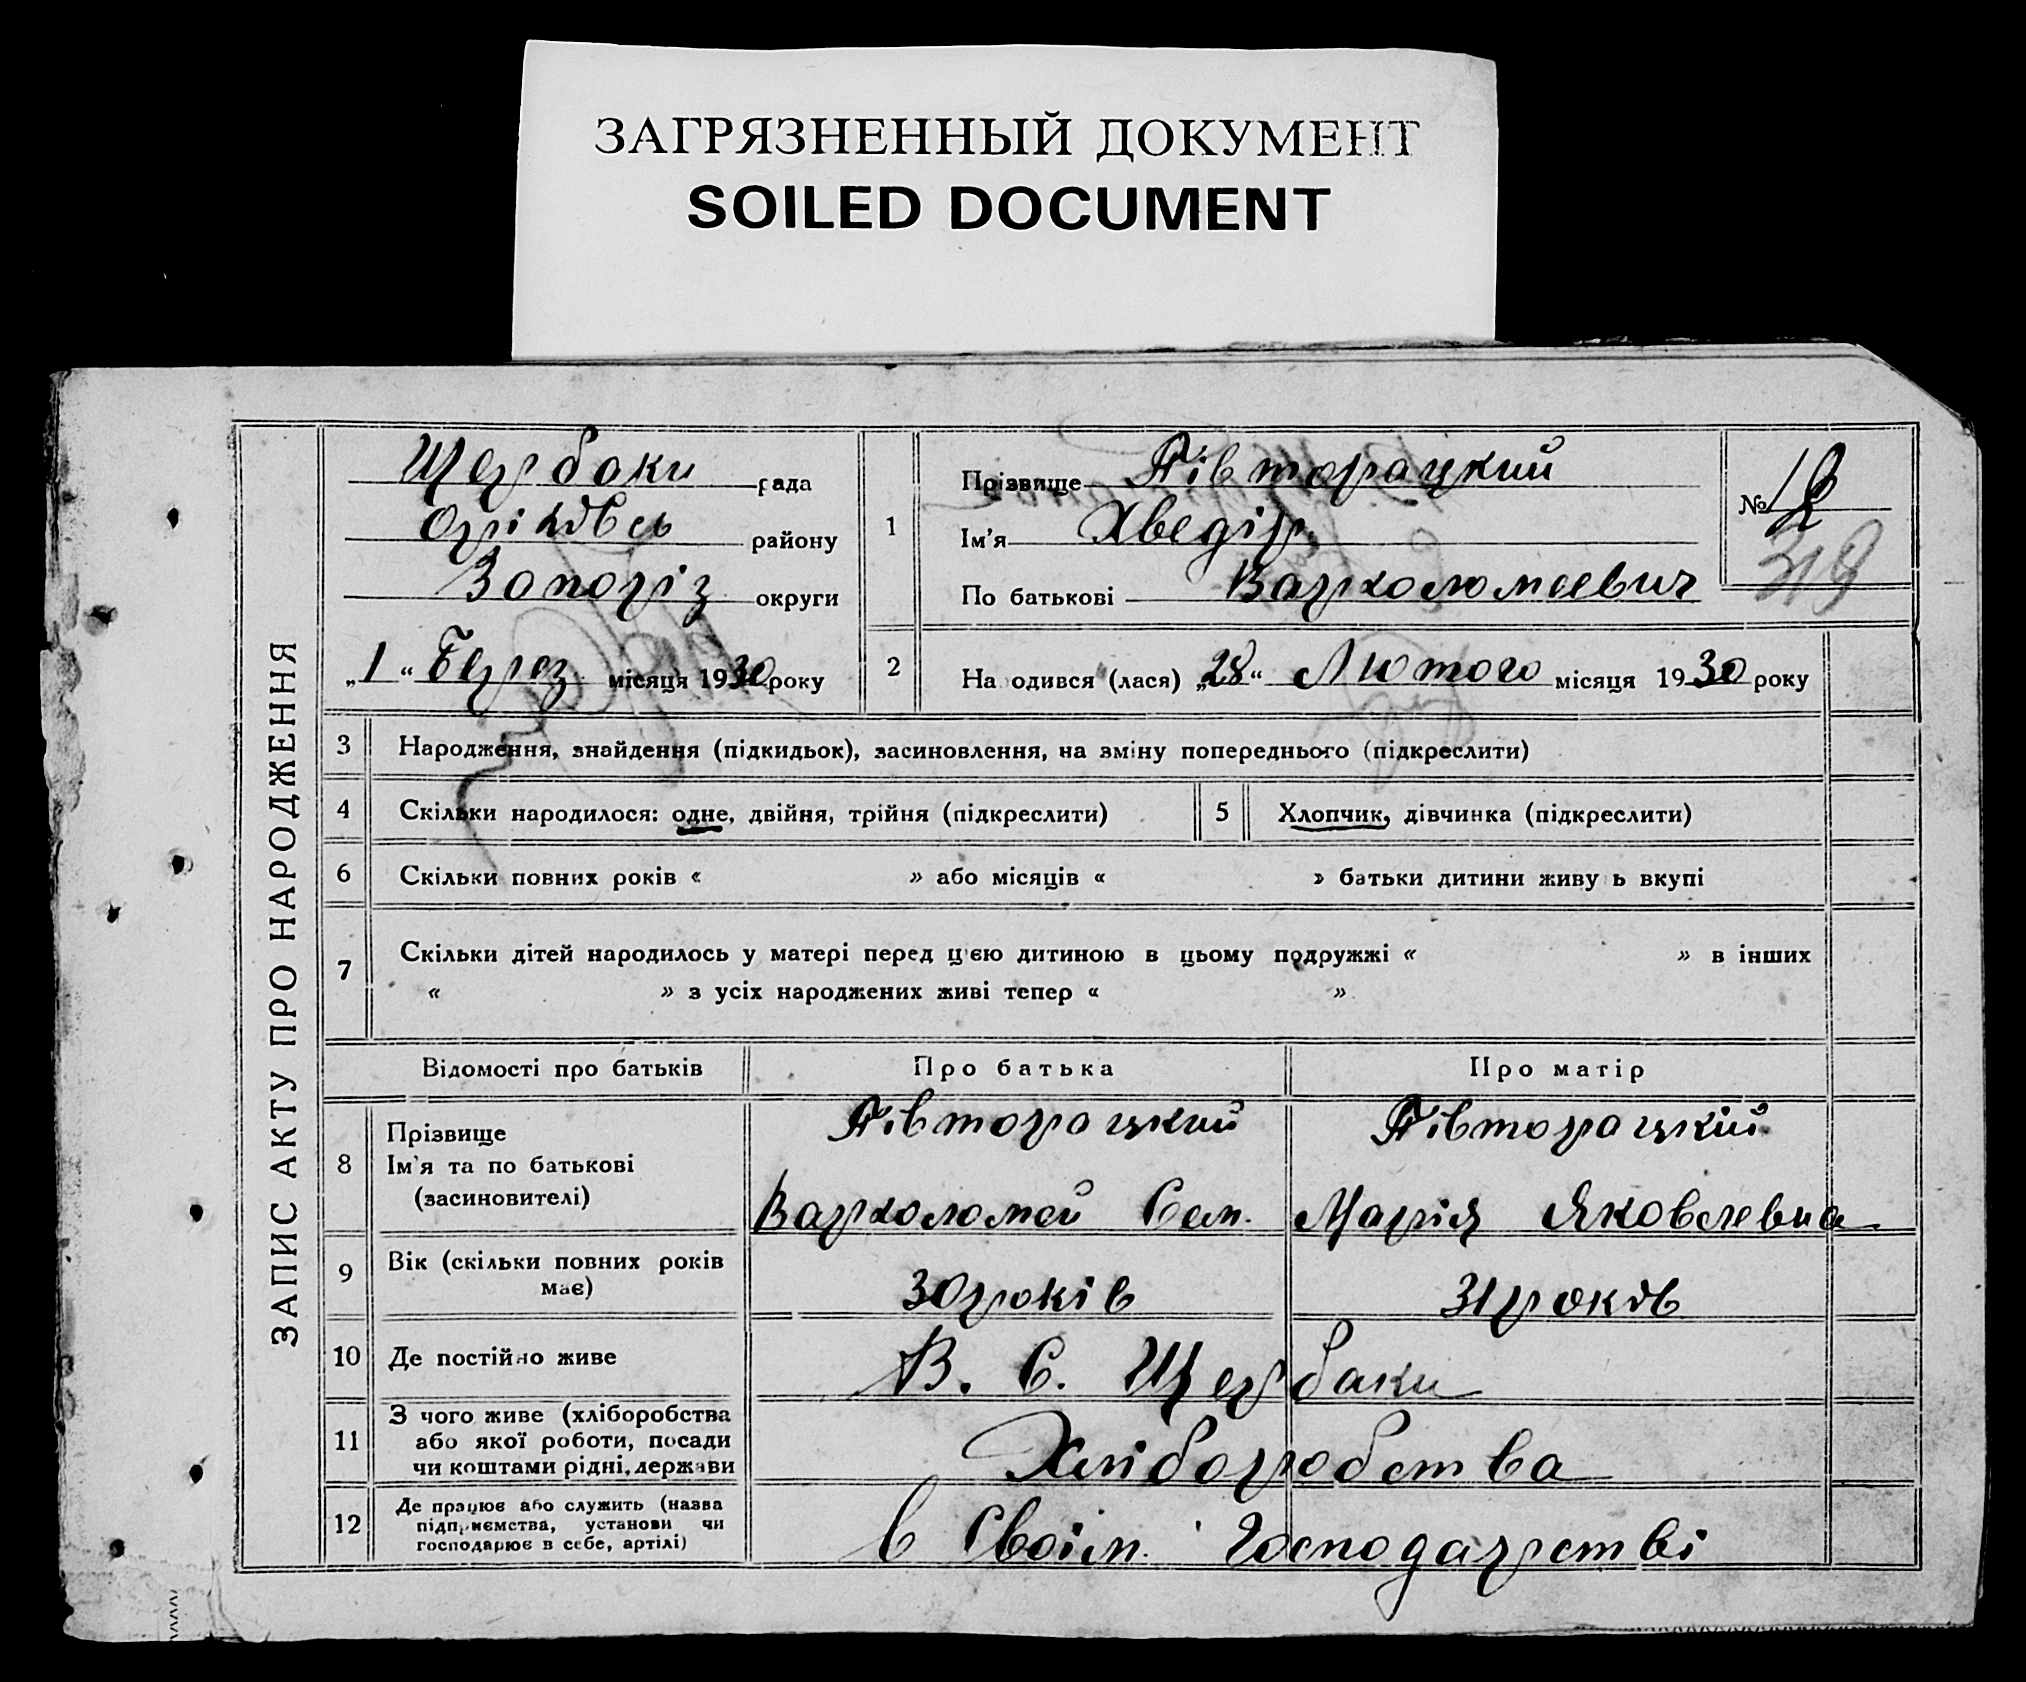 ЗАГРЯЗНЕННЫЙ ДОКУМЕНТ
SOILED DOCUMENT
ЗАПИС АКТУ ПРО НАРОДЖЕННЯ
Щербаки рада
Оріхівсь району
Запоріз округи
„1“ Берез місяця 1930 року
1
Прізвище Півторацкий
Ім'я Хведір
По батькові Вархоломеевич
№ 12
2
На одився (лася) „28“ Лютого місяця 1930 року
3 Народження, знайдення (підкидьок), засиновлення, на зміну попереднього (підкреслити)
4 Скільки народилося: одне, двійня, трійня (підкреслити) 5 Хлопчик, дівчинка (підкреслити)
6 Скільки повних років « » або місяців « » батьки дитини живу ь вкупі
7 Скільки дітей народилось у матері перед цією дитиною в цьому подружжі « » в інших
« » з усіх народжених живі тепер « »
Відомості про батьків Про батька Про матір
8
Прізвище
Ім'я та по батькові
(засиновителі)
Півторацкий
Вархоломей Сем.
Півторацкій
Марія Яковлевна
9
Вік (скільки повних років
має)
30 років 31 років
10 Де постійно живе В. С. Щербаки
11
З чого живе (хліборобства
або якої роботи, посади
чи коштами рідні, держави
Хліборобства
12
Де працює або служить (назва
підприємства, установи чи
господарює в себе, артілі)
в своім Господарстві